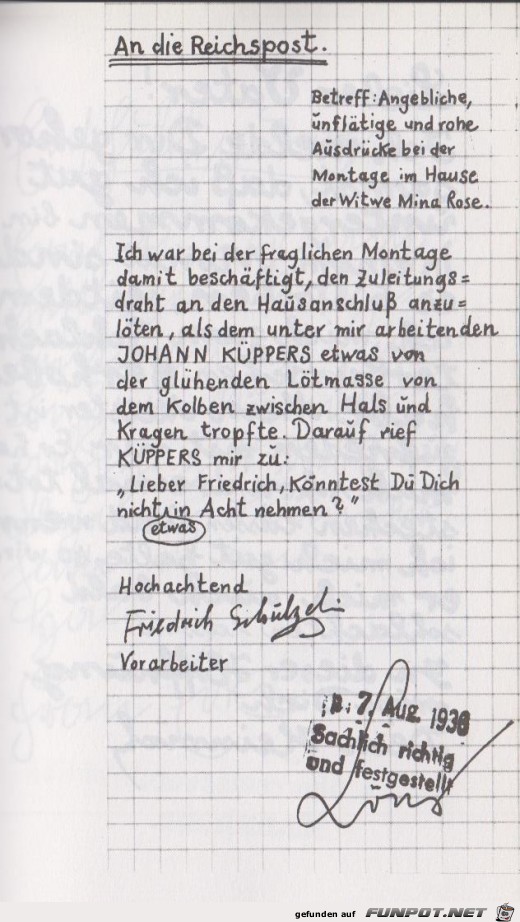 An die Reichspost.
Betreff: Angebliche,
unflätige und rohe
Ausdrücke bei der
Montage im Hause
der Witwe Mina Rose.
Ich war bei der fraglichen Montage
damit beschäftigt, den Zuleitungs=
draht an den Hausanschluß anzu=
löten, als dem unter mir arbeitenden
JOHANN KÜPPERS etwas von
der glühenden Lötmasse von
dem Kolben zwischen Hals und
Kragen tropfte. Darauf rief
KÜPPERS mir zu:
„Lieber Friedrich, Könntest Du Dich
nicht in Acht nehmen?"
etwas
Hochachtend
Friedrich
Vorarbeiter
7. Aug. 1936
Sachlich richtig
und festgestellt
gefunden auf FUNPOT.NET